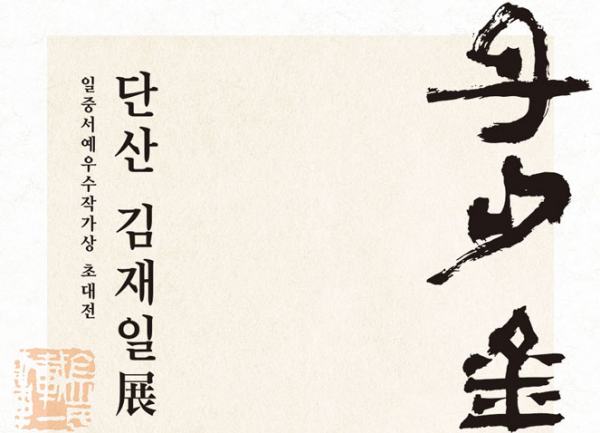 丹山金
단산 김재일展
일중서예우수작가상 초대전